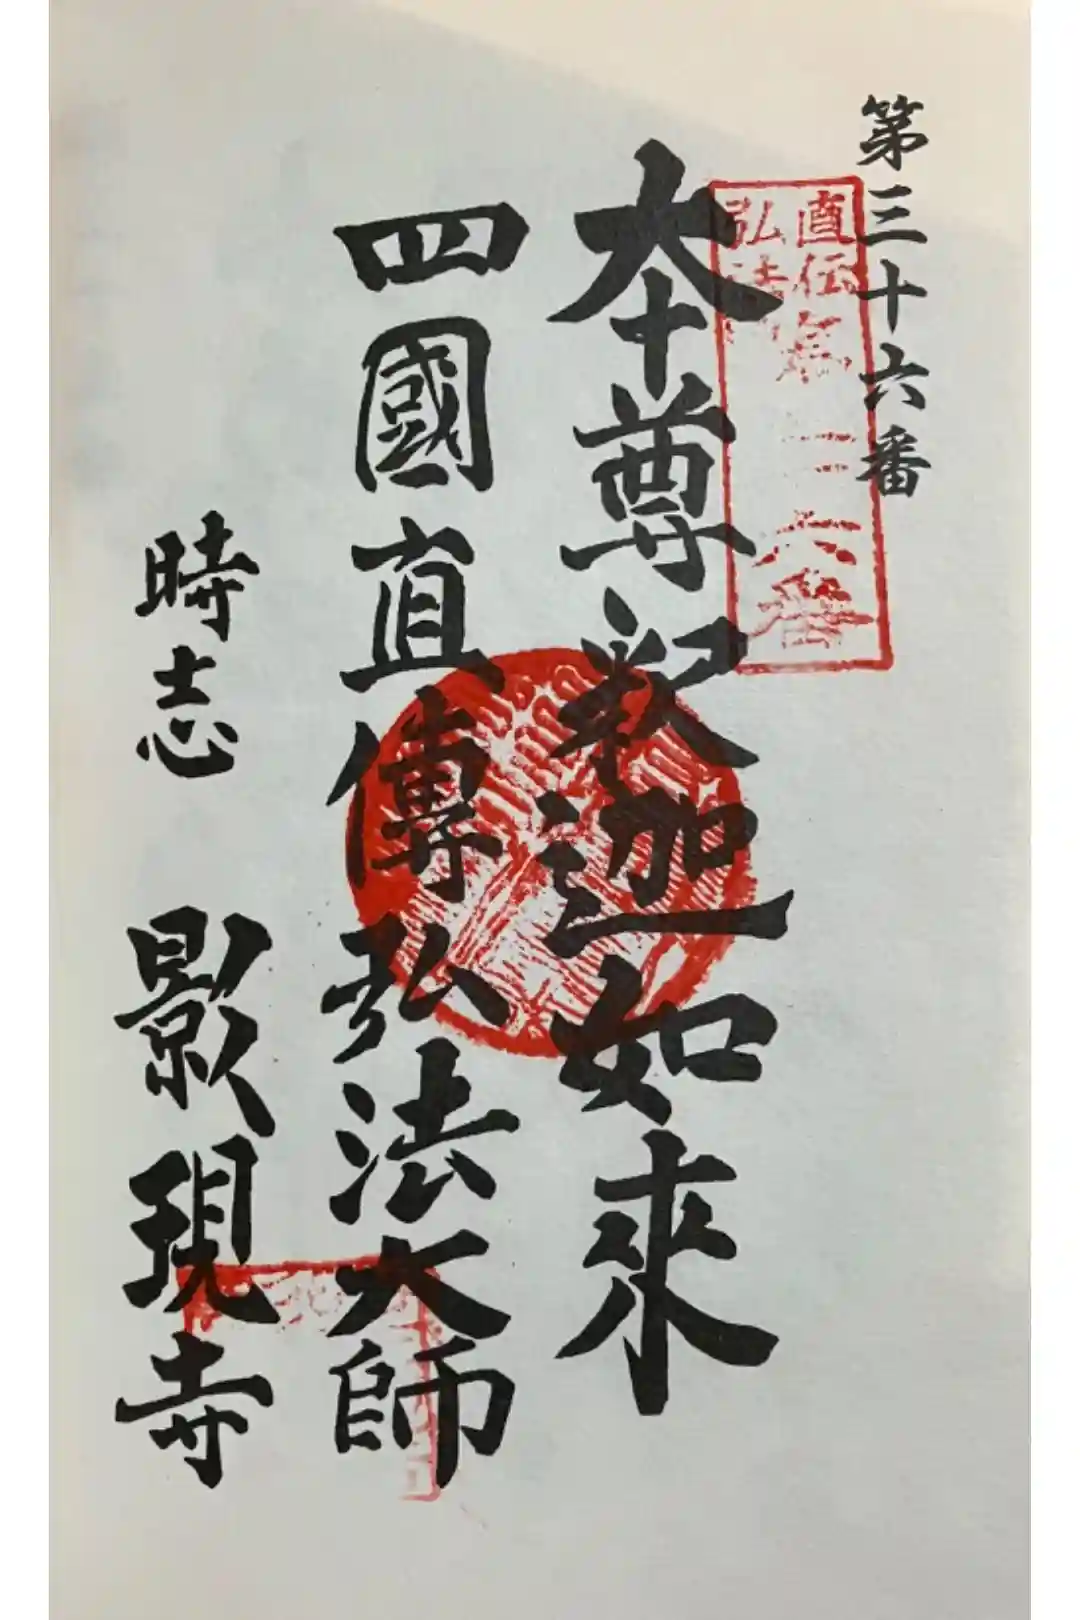 第三十六番
直伝
弘法
本尊釈迦如來
四國直傳弘法大師
時志 影現寺